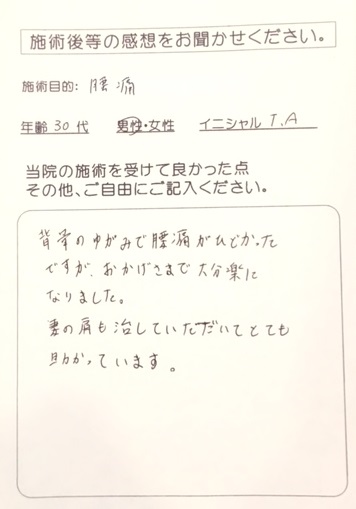 施術後等の感想をお聞かせください。
施術目的: 腰痛
年齢 30 代 男性・女性 イニシャル T.A
当院の施術を受けて良かった点
その他、ご自由にご記入ください。
背骨のゆがみで腰痛がひどかった
ですが、おかげさまで大分楽に
なりました。
妻の肩も治していただいてとても
助かっています。